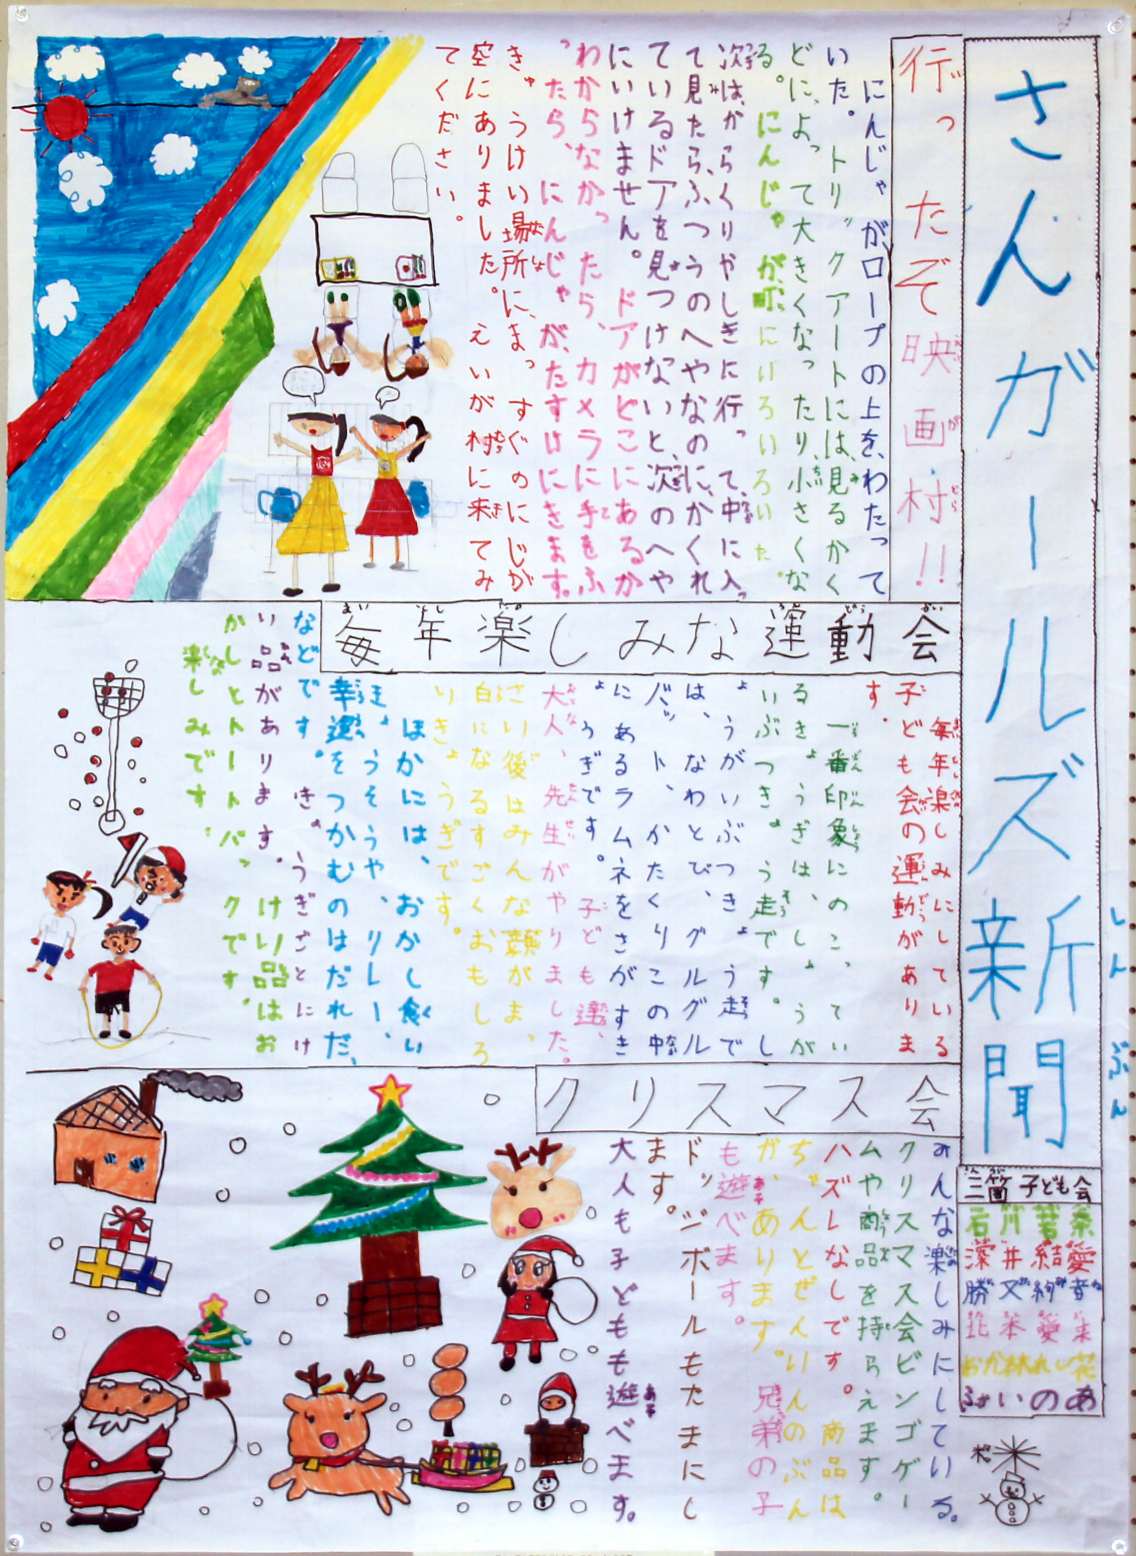 さんガールズ新聞
しんぶん
三箇子ども会
行ったぞ映画村!!
にんじゃがロープの上を、わたって
いた。トリックアートには、見るかく
どによって大きくなったり、小さくな
る。にんじゃが町にいろいろいた。
次は、からくりやしきに行って、中に入っ
て見たら、ふつうのへやなのに、かくれ
ているドアを見つけないと、次のへや
にいけません。ドアがどこにあるか
わからなかったら、カメラに手をふ
ったら、にんじゃが、たすけにきます。
きゅうけい場所に、まっすぐのにじが
空にありました。えいが村に来てみ
てください。
毎年楽しみな運動会
毎年楽しみにしている
子ども会の運動がありま
す。
一番印象にのこってい
るきょうぎは、しょうが
いぶつきょう走です。し
ょうがいぶつきょう走で
は、なわとび、グルグル
バット、かたくりこの中
にあるラムネをさがすき
ょうぎです。子ども達、
大人、先生がやりました。
さい後はみんな顔がまっ
白になるすごくおもしろ
いきょうぎです。
ほかには、おかし食い
きょうそうや、リレー、
幸運をつかむのはだれだ、
などです。きょうぎごとにけ
い品があります。けい品はお
かしとトートバックです。
楽しみです。
クリスマス会
みんな楽しみにしている。
クリスマス会ビンゴゲー
ムや商品を持らえます。
ハズレなしです。商品は
ちゃんとぜんいんのぶん
が、あります。兄弟の子
も遊べます。
ドッジボールもたまにし
ます。
大人も子どもも遊べます。